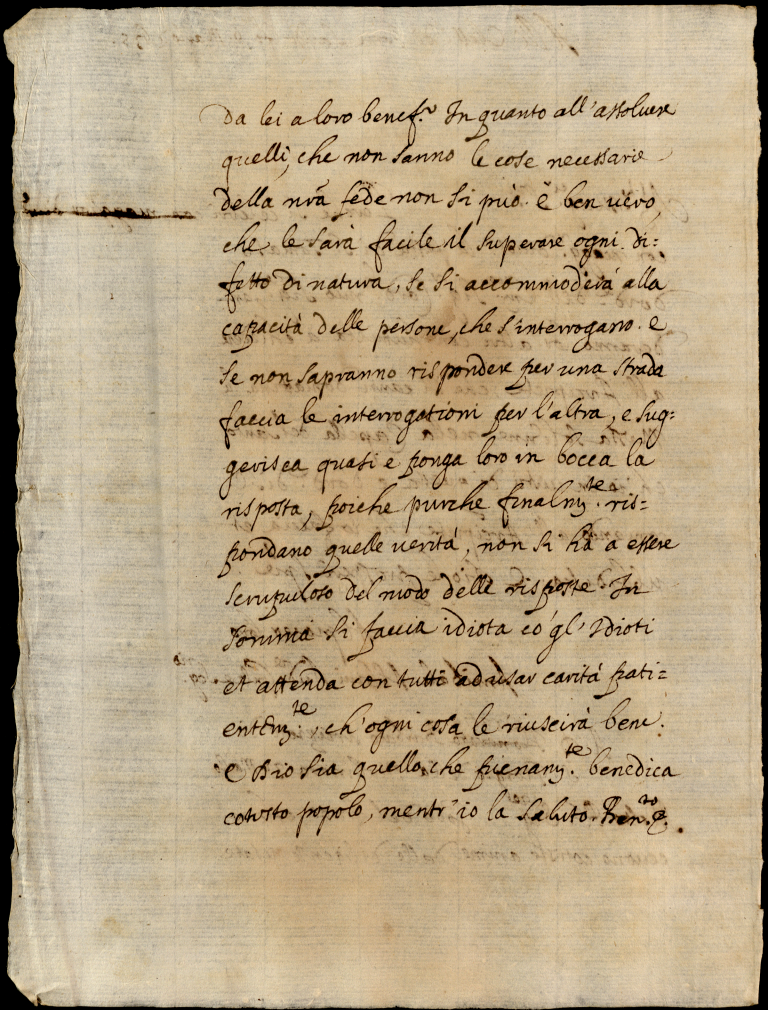 da lei a loro benef.º In quanto all'assoluere
quelli, che non sanno le cose necessarie
della nr̃a fede non si può. è ben uero,
che le sarà facile il superare ogni di=
fetto di natura, se si accommoderà alla
capacità delle persone, che s'interrogano. e
se non sapranno rispondere per una strada
faccia le interrogationi per l'altra, e sug=
gerisca quasi e ponga loro in bocca la
risposta, poiche purche finalm.te ris=
pondano quelle uerità, non si hà a essere
scrupuloso del modo delle risposte. In
somma si faccia idiota cõ gl'Idioti
et attenda con tutti ad usar carità pati=
entem.te, ch'ogni cosa le riuscirà bene.
e Dio sia quello, che pienam.te benedica
cotesto popolo, mentr'io la saluto.